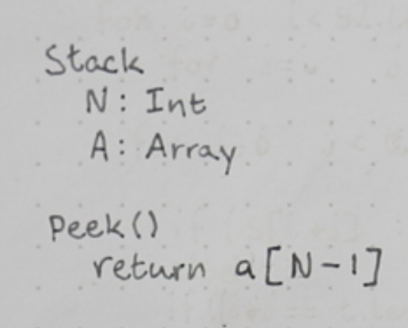 Stack
N: Int
A: Array
Peek()
return a[N-1]